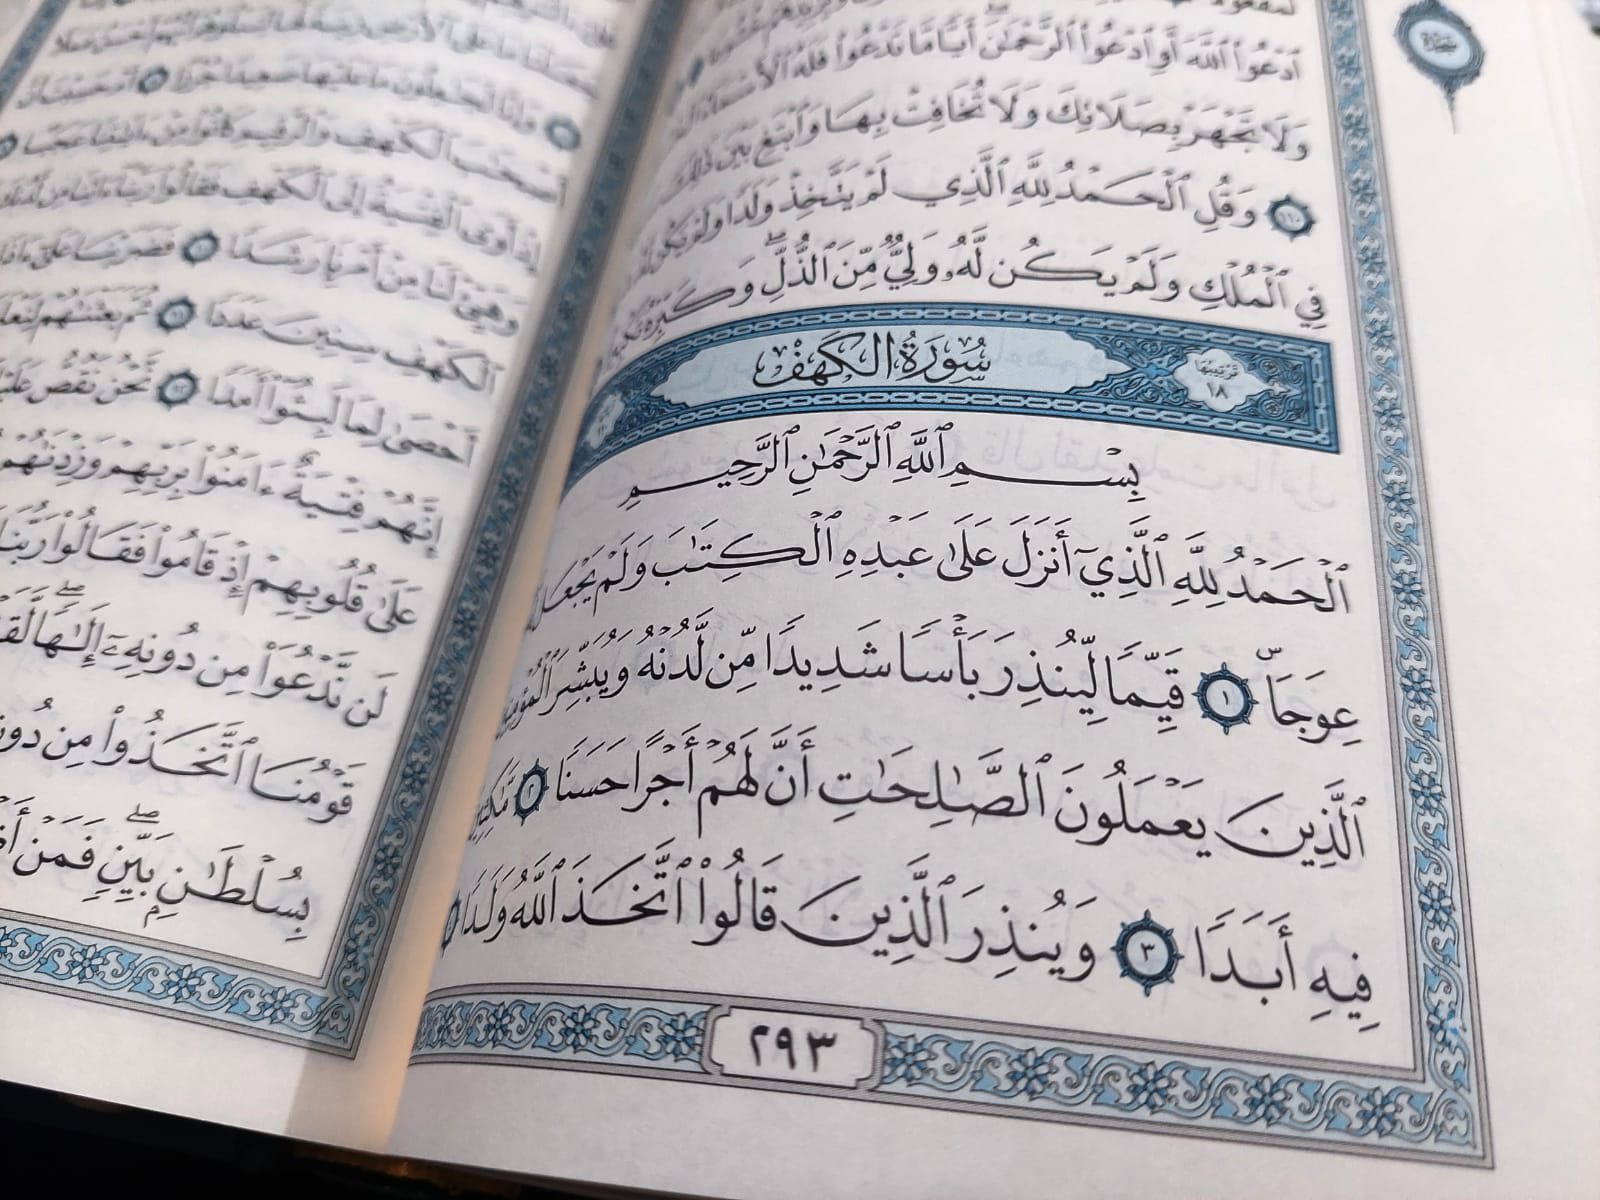 ٱدْعُوا۟ ٱللَّهَ أَوِ ٱدْعُوا۟ ٱلرَّحْمَٰنَ أَيًّا مَّا تَدْعُوا۟ فَلَهُ ٱلْأَسْمَآءُ
وَلَا تَجْهَرْ بِصَلَاتِكَ وَلَا تُخَافِتْ بِهَا وَٱبْتَغِ بَيْنَ ذَٰلِكَ
١١٠ وَقُلِ ٱلْحَمْدُ لِلَّهِ ٱلَّذِي لَمْ يَتَّخِذْ وَلَدًا وَلَمْ يَكُن
فِي ٱلْمُلْكِ وَلَمْ يَكُن لَّهُۥ وَلِيٌّ مِّنَ ٱلذُّلِّ ۖ وَكَبِّرْهُ
تَرْتِيبُهَا ١٨ سُورَةُ الكَهْفِ
بِسْمِ ٱللَّهِ ٱلرَّحْمَٰنِ ٱلرَّحِيمِ
ٱلْحَمْدُ لِلَّهِ ٱلَّذِيٓ أَنزَلَ عَلَىٰ عَبْدِهِ ٱلْكِتَٰبَ وَلَمْ يَجْعَل
عِوَجَاۜ ١ قَيِّمًا لِّيُنذِرَ بَأْسًا شَدِيدًا مِّن لَّدُنْهُ وَيُبَشِّرَ ٱلْمُؤْمِنِينَ
ٱلَّذِينَ يَعْمَلُونَ ٱلصَّٰلِحَٰتِ أَنَّ لَهُمْ أَجْرًا حَسَنًا ٢ مَّٰكِثِينَ
فِيهِ أَبَدًا ٣ وَيُنذِرَ ٱلَّذِينَ قَالُوا۟ ٱتَّخَذَ ٱللَّهُ وَلَدًا
٢٩٣
وَإِنَّا لَجَٰعِلُونَ مَا عَلَيْهَا صَعِيدًا جُرُزًا ٨ أَمْ حَسِبْتَ أَنَّ
أَصْحَٰبَ ٱلْكَهْفِ وَٱلرَّقِيمِ كَانُوا۟ مِنْ ءَايَٰتِنَا عَجَبًا
إِذْ أَوَى ٱلْفِتْيَةُ إِلَى ٱلْكَهْفِ فَقَالُوا۟ رَبَّنَآ ءَاتِنَا مِن
وَهَيِّئْ لَنَا مِنْ أَمْرِنَا رَشَدًا ١٠ فَضَرَبْنَا عَلَىٰٓ
ٱلْكَهْفِ سِنِينَ عَدَدًا ١١ ثُمَّ بَعَثْنَٰهُمْ
أَحْصَىٰ لِمَا لَبِثُوٓا۟ أَمَدًا ١٢ نَّحْنُ نَقُصُّ
إِنَّهُمْ فِتْيَةٌ ءَامَنُوا۟ بِرَبِّهِمْ وَزِدْنَٰهُمْ
عَلَىٰ قُلُوبِهِمْ إِذْ قَامُوا۟ فَقَالُوا۟ رَبُّنَا
لَن نَّدْعُوَا۟ مِن دُونِهِۦٓ إِلَٰهًا ۖ
قَوْمُنَا ٱتَّخَذُوا۟ مِن
بِسُلْطَٰنٍۭ بَيِّنٍ ۖ فَمَنْ